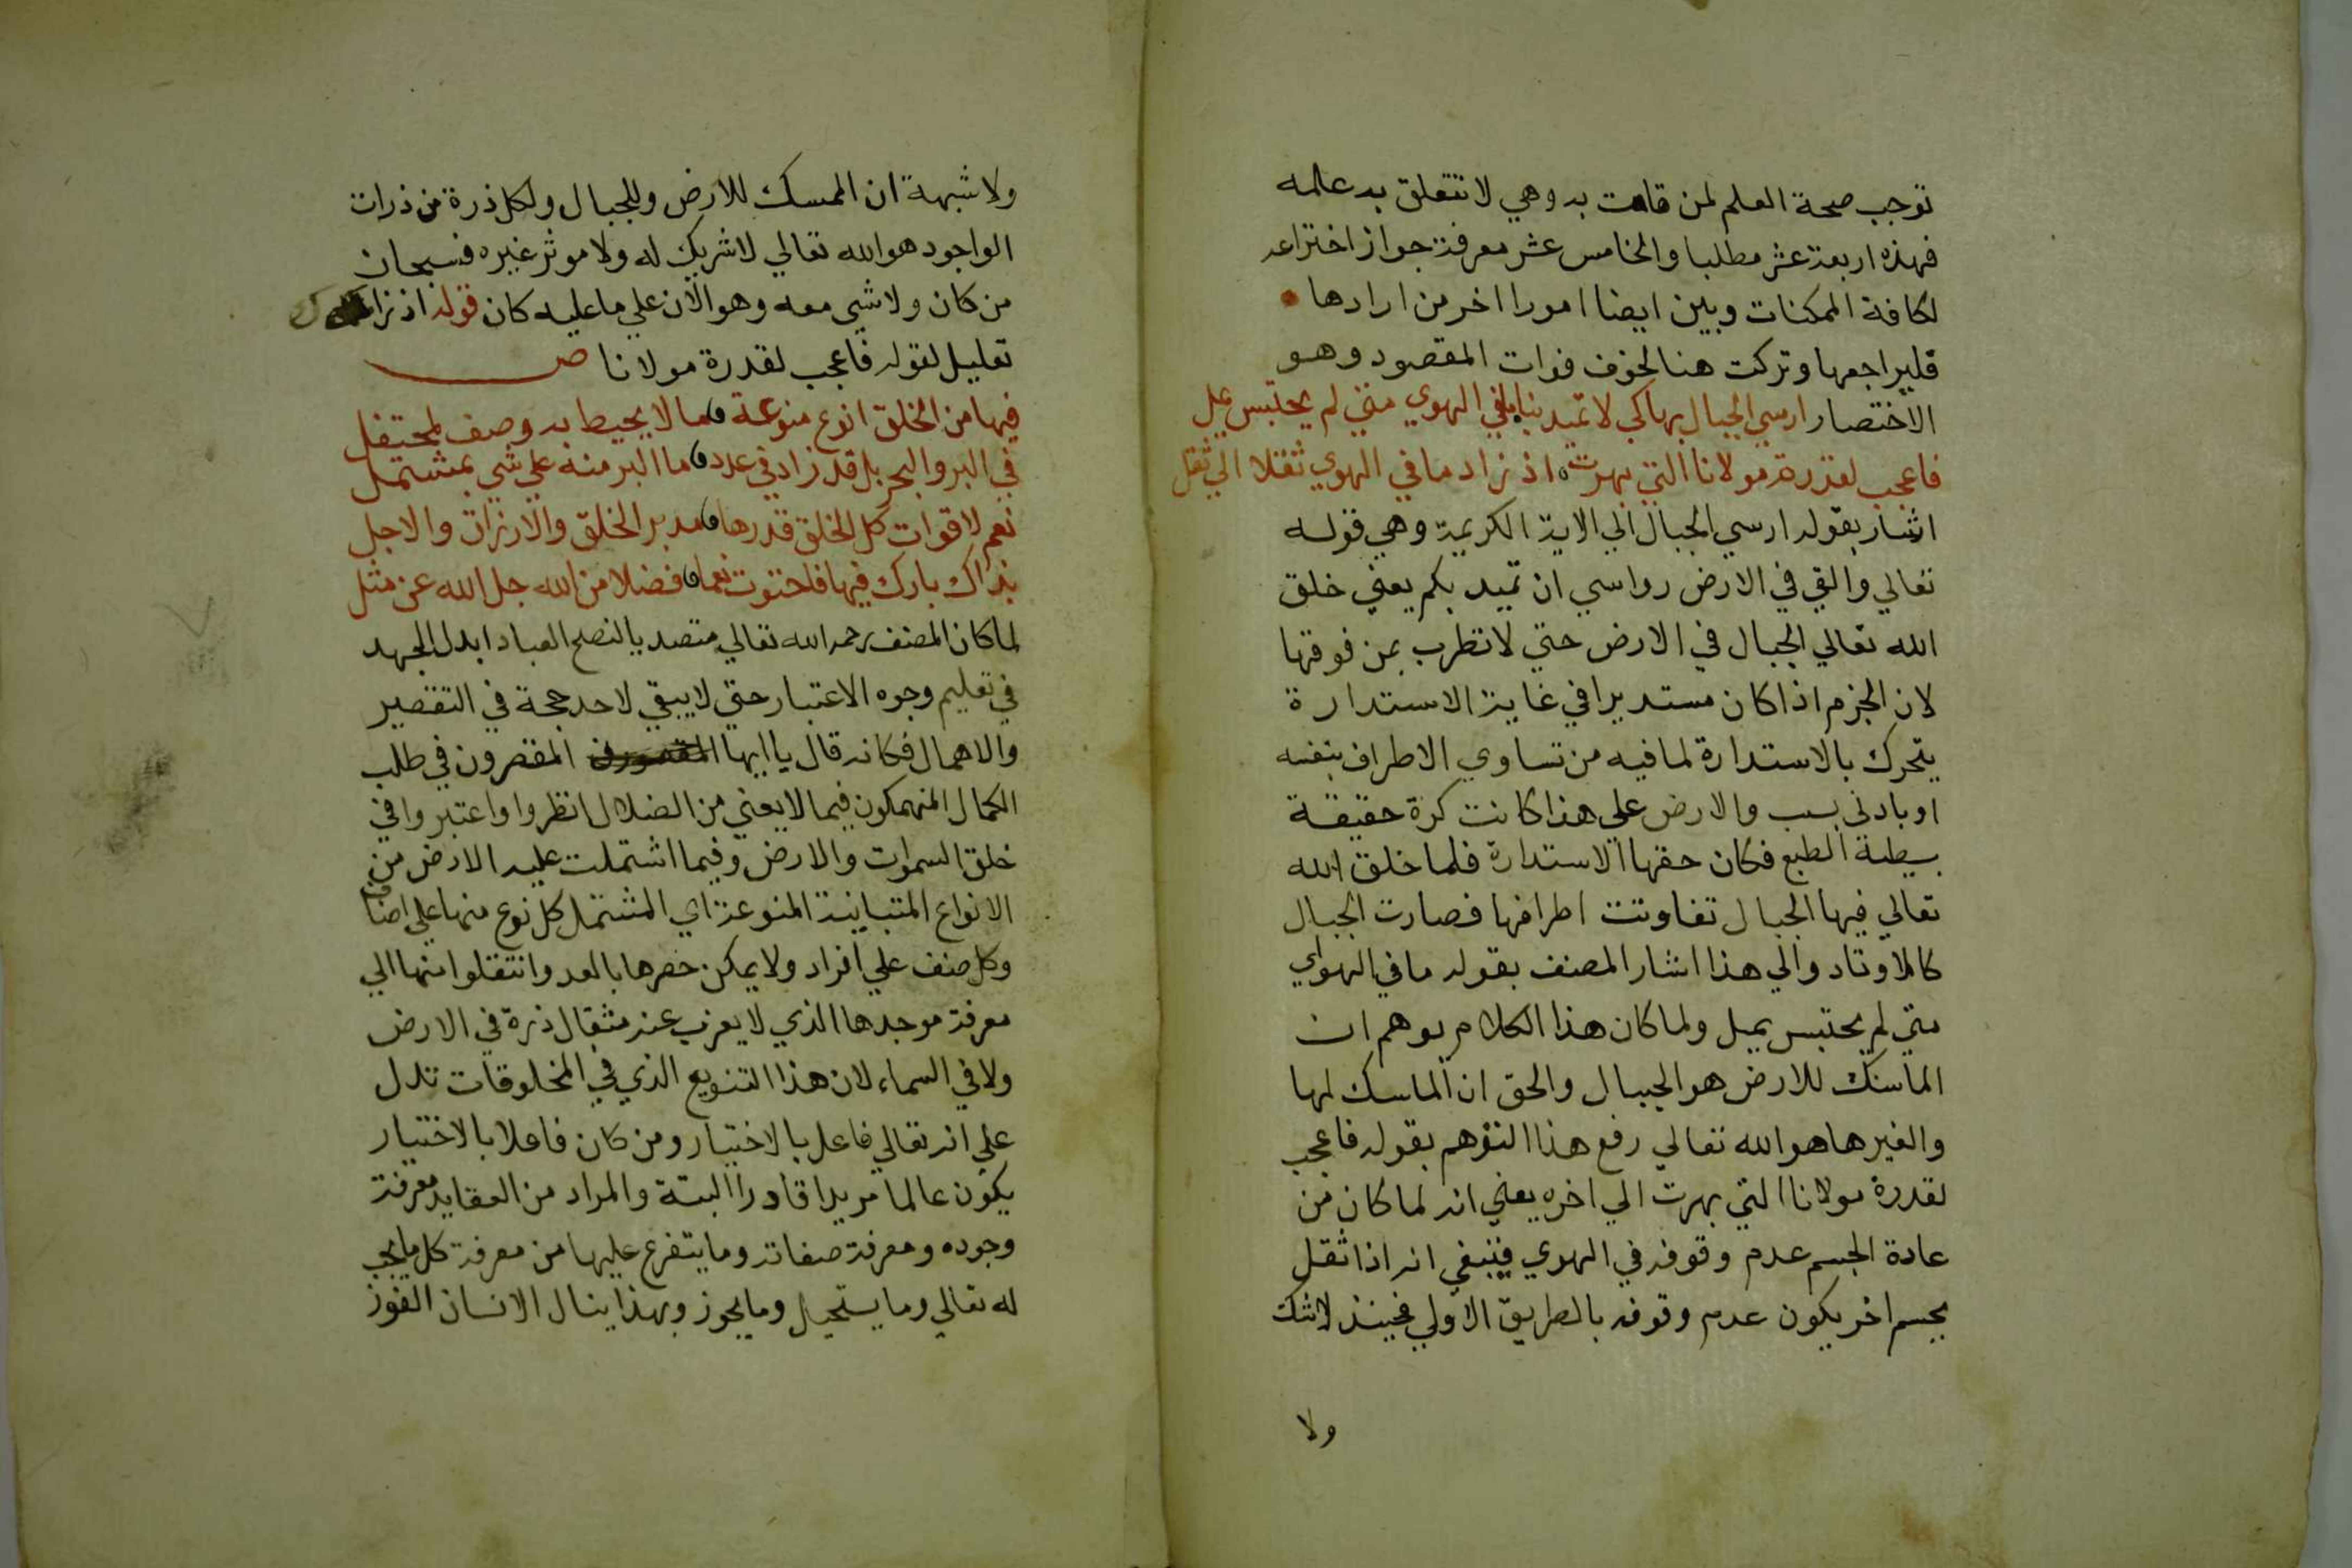 توجب صحة العلم لمن قامت به وهي لا تتعلق به علمه
فهذه اربعة عشر مطلبا والخامس عشر معرفة جواز اختراعه
لكافة الممكنات وبين ايضا امورا اخر من ارادها
فليراجعها وتركت هنا لخوف فوات المقصود وهو
الاختصار ارسي الجبال بها كي لا تميد بنا في الهوي متي لم يحتبس يمل
فاعجب لقدرة مولانا التي بهرت اذ زاد ما في الهوي ثقلا الي ثقل
اشار بقوله ارسي الجبال الي الاية الكريمة وهي قوله
تعالي والقي في الارض رواسي ان تميد بكم يعني خلق
الله تعالي الجبال في الارض حتي لا تظرب بمن فوقها
لان الجزم اذا كان مستديرا في غاية الاستدارة
يتحرك بالاستدارة لما فيه من تساوي الاطراف بنفسه
او بادني بسب والارض علي هذا كانت كرة حقيقة
بسيطة الطبع فكان حقها الاستدارة فلما خلق الله
تعالي فيها الجبال تفاوتت اطرافها فصارت الجبال
كالاوتاد والي هذا اشار المصنف بقوله ما في الهواي
متي لم يحتبس يميل ولما كان هذا الكلام يوهم ان
الماسك للارض هو الجبال والحق ان الماسك لها
والغيرها هو الله تعالي رفع هذا التوهم بقوله فاعجب
لقدرة مولانا التي بهرت الي اخره يعني انه لما كان من
عادة الجسم عدم وقوفه في الهوي فينبغي انه اذا ثقل
بجسم اخر يكون عدم وقوفه بالطريق الاولي فحينئذ لا شك
ولا
ولا شبهة ان الممسك للارض وللجبال ولكل ذرة من ذرات
الواجود هو الله تعالي لا شريك له ولا موثر غيره فسبحان
من كان ولا شي معه وهو الان علي ما عليه كان قوله اذ زاد
تعليل لقوله فاعجب لقدرة مولانا ص
فيها من الخلق انوع منوعة ما لا يحيط به وصف لمحتفل
في البر والبحر بل قد زاد في عدد ما البر منه علي شي بمشتمل
نعم لاقوات كل الخلق قدرها مدبر الخلق والارزاق والاجل
بذاك بارك فيها فاحتوت نعما فضلا من الله جل الله عن مثل
لما كان المصنف رحمه الله تعالي متصديا لنصح العباد ابدل الجهد
في تعليم وجوه الاعتبار حتي لا يبقي لاحد حجة في التقصير
والاهمال فكانه قال يا ايها المقصرون في طلب
الكمال المنهمكون فيما لا يعني من الضلال انظروا واعتبروا في
خلق السموات والارض وفيما اشتملت عليه الارض من
الانواع المتباينة المنوعة اي المشتمل كل نوع منها علي اصناف
وكل صنف علي افراد ولا يمكن حصرها بالعد وانتقلوا منها الي
معرفة موجدها الذي لا يعزب عنه مثقال ذرة في الارض
ولا في السماء لان هذا التنويع الذي في المخلوقات تدل
علي انه تعالي فاعل بالاختيار ومن كان فاعلا بالاختيار
يكون عالما مريدا قادرا البتة والمراد من العقايد معرفة
وجوده ومعرفة صفاته وما يتفرع عليها من معرفة كل ما يجب
له تعالي وما يستحيل وما يجوز وبهذا ينال الانسان الفوز